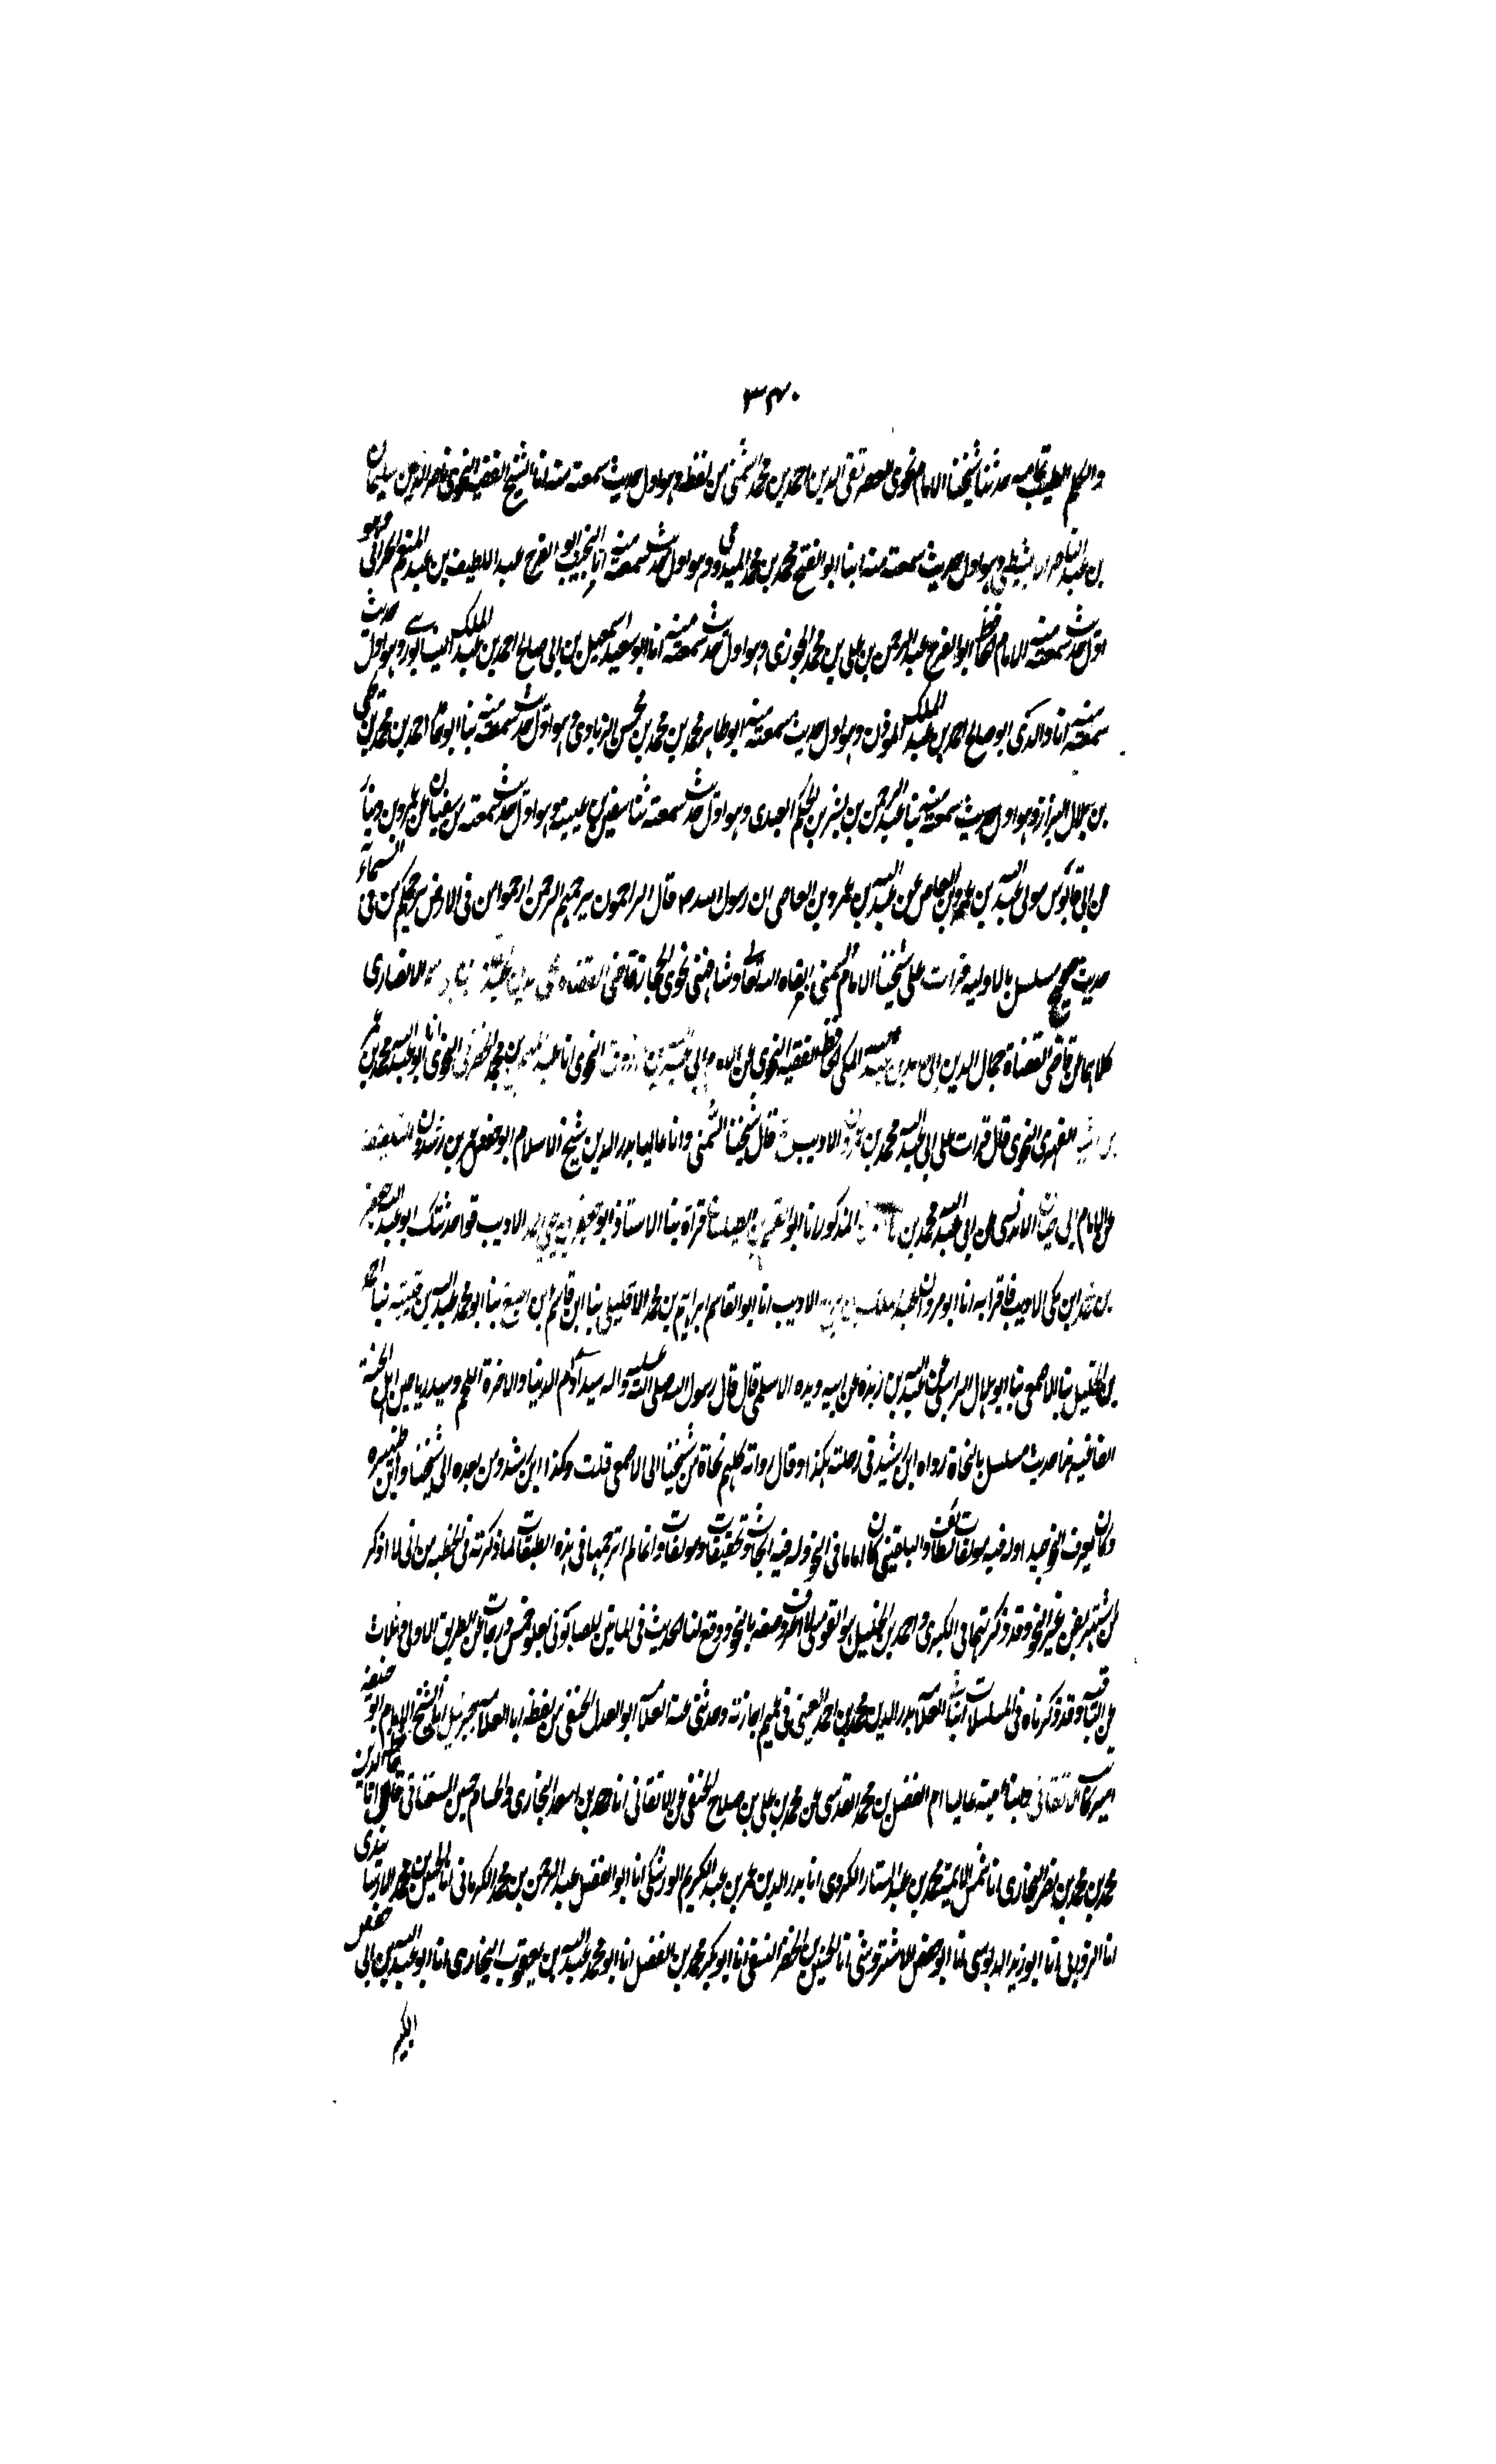 ۳۴۰
والحكم لطيف حدثنا شيخنا الامام نحوى العصر تقى الدين احمد بن محمد الشمنى من لفظه وهو اول حديث سمعته منه انا الشيخ الفقيه النحوى ناصر الدين سليمان
بن عبد الناصر الابشيطى وهو اول حديث سمعته منه انبا ابو الفتح محمد بن محمد الميدومى وهو اول حديث سمعته منه انا النجيب ابو الفرج عبد اللطيف بن عبد المنعم الحرانى وهو
اول حديث سمعته منه الامام الحافظ ابو الفرج عبد الرحمن بن على بن محمد الجوزى وهو اول حديث سمعته منه انا ابو سعيد اسمعيل بن ابى صالح احمد بن عبد الملك النيسابورى وهو اول حديث
سمعته منه انا والدى ابو صالح احمد بن عبد الملك الموذن وهو اول حديث سمعته منه ابو طاهر محمد بن محمد بن محسن الزيادى وهو اول حديث سمعته منه بنا ابو حامد احمد بن محمد بن يحيى
بن بلال البزاز وهو اول حديث سمعته منه بنا عبد الرحمن بن بشر بن الحكم العبدى وهو اول حديث سمعته ثنا سفين بن عيينة وهو اول حديث سمعته من سفيان عن عمرو بن دينار
عن ابى قابوس مولى عبد الله بن عمرو بن العاص عن عبد الله بن عمرو بن العاصى ان رسول الله ص قال الراحمون يرحمهم الرحمن ارحموا من فى الارض يرحمكم من فى السماء
حديث صحيح مسلسل بالاولية قرات على شيخنا الامام الشمنى ابقاه الله تعالى وشافهنى نحوى الحجاز قاضى القضاة الانصارى
كلاهما عن قاضى القضاة جمال الدين المكى الحافظ الفقيه النحوى عن النحوى انا بن محمد الحضرمى النحوى انا ابو عبد الله محمد بن عمر
الفهرى النحوى قال قرات على ابى عبد الله محمد بن الاديب ح قال شيخنا الشمنى وانا عاليا بدر الدين شيخ الاسلام ابو حفص عمر بن رسلان البلقينى
عن الامام ابى حيان الاندلسى عن ابى عبد الله محمد بن المذكور انا ابو القسم بن قراة بنا الاستاذ ابو جعفر الاديب قوا حدثك ابو عبد الله جعفر
بن محمد بن مكى الاديب فاقر به انا ابو مروان عبد الملك بن الاديب انا ابو القاسم ابراهيم بن محمد الافليلى بنا ابن قاسم بن اصبغ بنا ابو محمد عبد الله بن قتيبة نبا احمد
بن الخليل بنا الاصمعى بنا ابو هلال الراسبى عن عبد الله بن بريدة عن ابيه بريده الاسلمى قال قال رسول الله صلى الله عليه واله سيد آدام الدنيا والاخرة اللحم وسيد رياحين اهل الجنة
الفاغية هذا حديث مسلسل بالنحاة رواه ابن رشيد فى رحلته هكذا وقال رواته كلهم نحاة من شيخنا الى الاصمعى قلت وكذا ابن رشد ومن بعده الى شيخنا وابن ظهيرة
وكان يعرف النحو جيدا وله فيه مولفات لطاف والبلقينى كان اماما فى النحو وله فيه ابحاث وتحقيقات ومولفات وانما لم اترجمهما فى هذه الطبقات لما ذكرته فى الخطبه من انى لا اذكر
من اشتهر بفن غير النحو وقد ذكرتهما فى الكبرى واحمد بن الخليل هو القومسى لا اعرف وصفه بالنحو ووقع لنا الحديث فى المايتين للصابونى بعلو خمس درجات عن الطريق الاولى وثلاث
عن الثانية وقد ذكرناه فى المسلسلات انبانا العلامه بدر الدين محمد بن احمد العينى فى عميم اجازته وحدثنى عنه العلامه ابو العدل الحنفى من لفظه انا العلامه جبريل انا الشيخ الامام ابو حنيفه
امير كاتب الاتقانى ح انباتنا عاليا ام الفضل بن محمد المقدسى عن محمد بن على بن صلاح الحنفى عن الاتقانى انا احمد بن اسعد البخارى والحسام حسين السغناقى قالا انا حافظ الدين
محمد بن محمد بن نصر البخارى انا شمس الايمة محمد بن عبد الستار الكردى انا بدر الدين عمر بن عبد الكريم الورسكى انا ابو الفضل عبد الرحمن بن محمد الكرمانى انا الحسين بن محمد الارسابندى
انا الزوزنى انا ابو زيد الدبوسى انا ابو جعفر الاشتروشنى انا الحسين بن الخضر النسفى انا ابو بكر محمد بن الفضل انا ابو محمد عبد الله بن يعقوب البخارى انا ابو عبد الله بن ابى حفص
الكبير